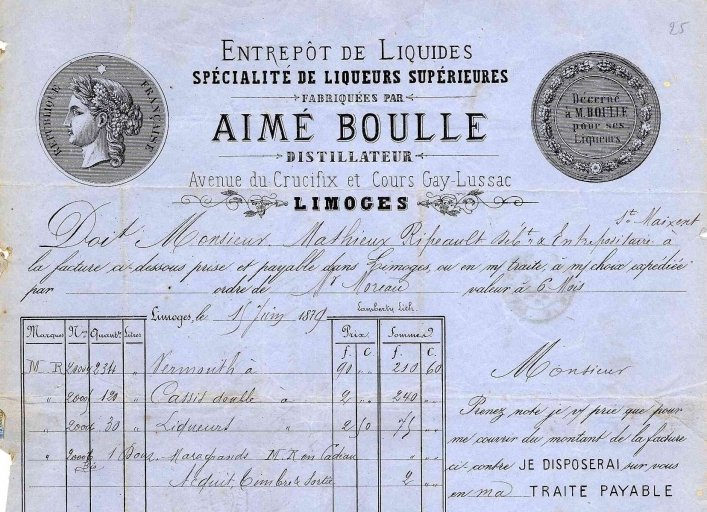 25
ENTREPÔT DE LIQUIDES
SPÉCIALITÉ DE LIQUEURS SUPÉRIEURES
FABRIQUÉES PAR
AIMÉ BOULLE
DISTILLATEUR
Avenue du Crucifix et Cours Gay-Lussac
LIMOGES
RÉPUBLIQUE FRANÇAISE
Décerné
à M. BOULLE
pour ses
Liqueurs
St Maixent
Doit Monsieur Mathieux Ripeault Entrepositaire à
la facture ci-dessous prise et payable dans Limoges, ou en m/ traite, à m/ choix expédiée
par ordre de Mr Moreau valeur à 6 Mois
Limoges, le 15 Juin 1879
Lamberty Lith.
Marques Nos Quantés Litres Prix Sommes
f. C. f. C.
M. R 234 " Vermouth à 90 " 210 60
" 120 " Cassis double à 2 " 240 "
" 30 " Liqueurs " 2 50 75 "
" 1 M. R en
Acquit, timbre & Sortie 2 "
Monsieur
Prenez note je v/ prie que pour
me couvrir du montant de la facture
ci-contre JE DISPOSERAI sur vous
en ma TRAITE PAYABLE